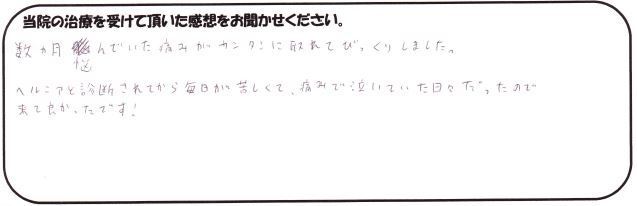 当院の治療を受けて頂いた感想をお聞かせください。
数カ月悩んでいた痛みがカンタンに取れてびっくりしました。
ヘルニアと診断されてから毎日が苦しくて、痛みで泣いていた日々だったので
来て良かったです!